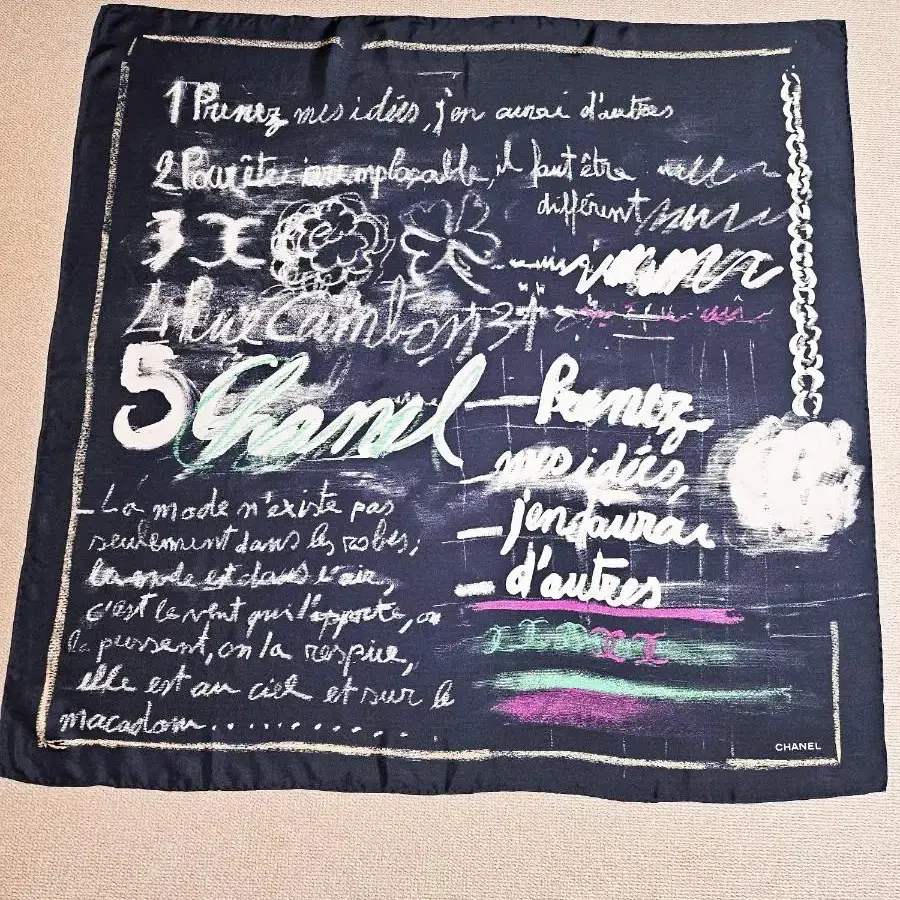 1 Prenez mes idées, j'en aurai d'autres
2 Pour être irremplaçable, il faut être
différent
3
4 Rue Cambon 31
5 Chanel
Prenez
mes idées,
j'en aurai
d'autres
La mode n'existe pas
seulement dans les robes;
la mode est dans l'air,
c'est le vent qui l'apporte, on
la pressent, on la respire,
elle est au ciel et sur le
macadam..........
CHANEL